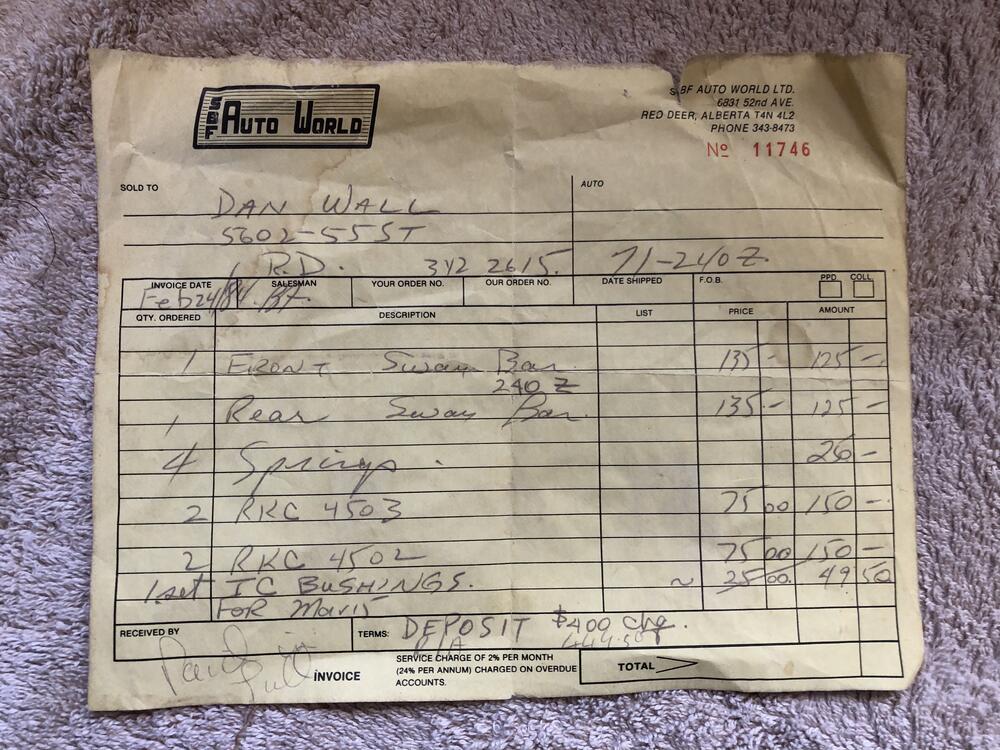 SBF AUTO WORLD
SBF AUTO WORLD LTD.
6831 52nd AVE.
RED DEER, ALBERTA T4N 4L2
PHONE 343-8473
Nº 11746
SOLD TO
AUTO
DAN WALL
5602-55 ST
R.D. 342 2615. 71-240Z
INVOICE DATE SALESMAN YOUR ORDER NO. OUR ORDER NO. DATE SHIPPED F.O.B. PPD COLL
Feb 24/84
QTY. ORDERED DESCRIPTION LIST PRICE AMOUNT
1 FRONT Sway Bar 135- 125-
240 Z
1 Rear Sway Bar 135.- 125-
4 Springs 26-
2 RKC 4503 75 00 150-
2 RKC 4502 75 00 150-
1 set IC BUSHINGS. ~ 25 00. 49 50
FOR Mavis
RECEIVED BY TERMS: DEPOSIT $400 chq.
Paid in full
INVOICE
SERVICE CHARGE OF 2% PER MONTH
(24% PER ANNUM) CHARGED ON OVERDUE
ACCOUNTS.
TOTAL